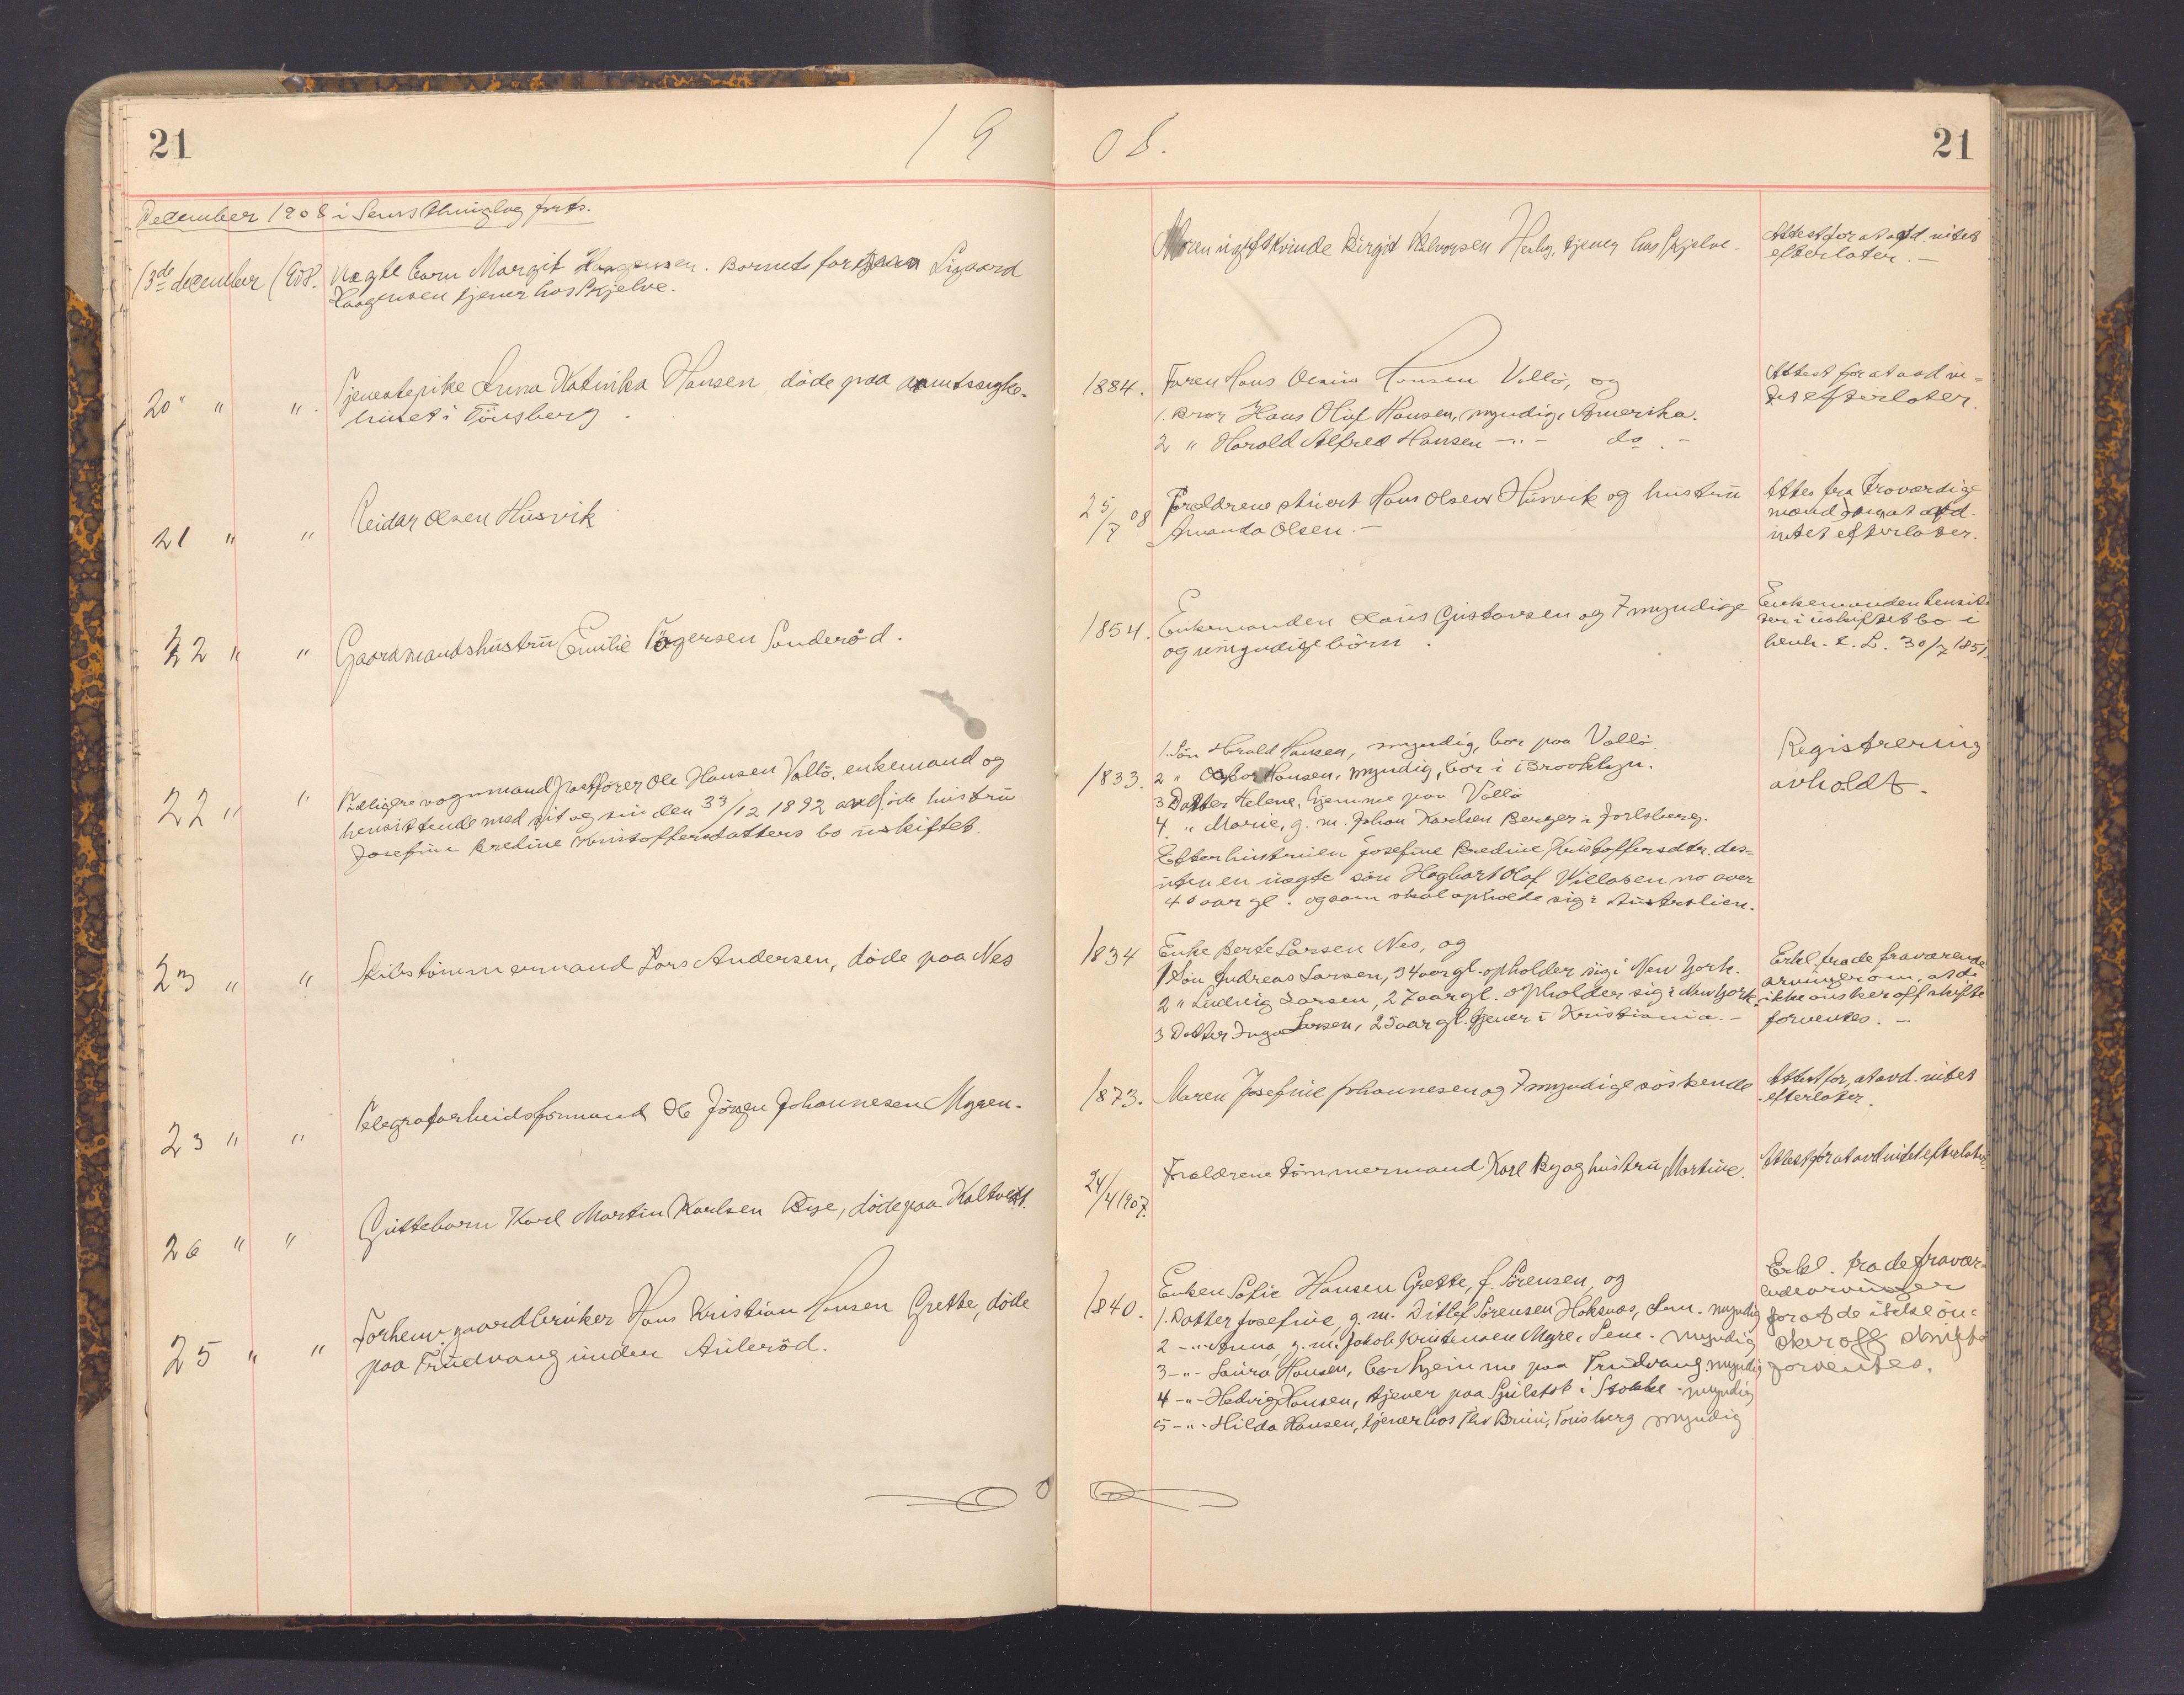 21
19
December 1908 i Sems thinglag forts.
13de december 1908. Uægte barn Margit Haagensen. Barnets far Sigaard
Haagensen tjener hos Skjelve.
20 " " Tjenestepike Anna Katinka Hansen døde paa amtssyke-
huset i Tönsberg.
21 " " Reidar Olsen Husvik
22 " " Gaardmandshustru Emilie Sönderöd.
22 " " Tidligere vognmand Ole Hansen Vallö. enkemand og
hensittende med sit og sin den /12 1892 avdöde hustru
Josefine Bredine Kristoffersdatters bo uskiftet.
23 " " Skibstömmermand Lars Andersen, døde paa Nes
23 " " Telegrafarbeidsformand Ole Jörgen Johannesen Myren.
26 " " Guttebarn Karl Martin Karlsen Bye, døde paa
25 " " Forhenv. gaardbruker Hans Kristian Hansen Grette, döde
paa Trudvang under Auleröd.
08.
21
Moren ugift kvinde Birgit Halvorsen tjener hos Skjelve.
Attest for at avd. intet
efterlater. —
1884. Faren Hans Hansen Vallö, og
1. Bror Hans Oluf Hansen, myndig, Amerika.
2 " Harald Alfred Hansen — " — do. —
Attest for at avd in-
tet efterlater.
25/7 08 Foreldrene stuert Hans Olsen Husvik og hustru
Amanda Olsen. —
Attes fra troværdige
mænd for at avd.
intet efterlater.
1854. Enkemanden Gustavsen og 7 myndige
og umyndige börn.
Enkemanden hensit-
ter i uskiftet bo i
henh. t. L. 30/7 1851.
1833. 1. Sön Harald Hansen, myndig, bor paa Vallö
2 " Hansen, myndig, bor i Brooklyn.
3 Datter Helene, hjemme paa Vallö
4. " Marie, g. m. Johan Karlsen Berger i Jarlsberg.
Efter hustruen Josefine Bredine Kristoffersdtr. des-
uten en uægte sön Haghart Olaf no over
40 aar gl. og som skal opholde sig i Australien.
Registrering
avholdt.
1834 Enke Berte Larsen Nes, og
1 Sön Andreas Larsen, 34 aar gl. opholder sig i New York.
2 " Ludvig Larsen, 27 aar gl. opholder sig i New York.
3 Datter Inga Larsen, 25 aar gl. tjener i Kristiania. —
Erkl. fra de fraværende
arvinger om, at de
ikke önsker off skifte
forventes. —
1873. Maren Josefine Johannesen og 7 myndige söskende
Attest for, at avd. intet
efterlater.
24/4 1907. Forældrene tömmermand Karl Bye og hustru Martine.
Attest for at avd intet efterlater.
1840. Enken Sofie Hansen Grette, f. Sörensen, og
1. Datter Josefine, g. m. Ditlef Sörensen Haksnes, Sem. myndig
2 — " — Anna, g. m. Jakob Kristensen Myre, Sem. myndig
3 — " — Laura Hansen, bor hjemme paa Trudvang. myndig
4 — " — Hedvig Hansen, tjener paa i Stokke — myndig
5 — " — Hilda Hansen, tjener hos Thv Bruu, Tönsberg myndig
Erkl. fra de fravær-
ende arvinger
for at de ikke ön-
sker off skifte
forventes.